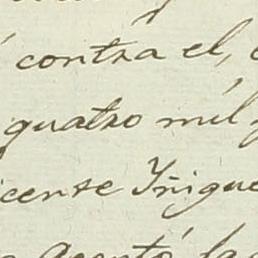 contra el,
quatro mil
icente Yñigue
aceptó la